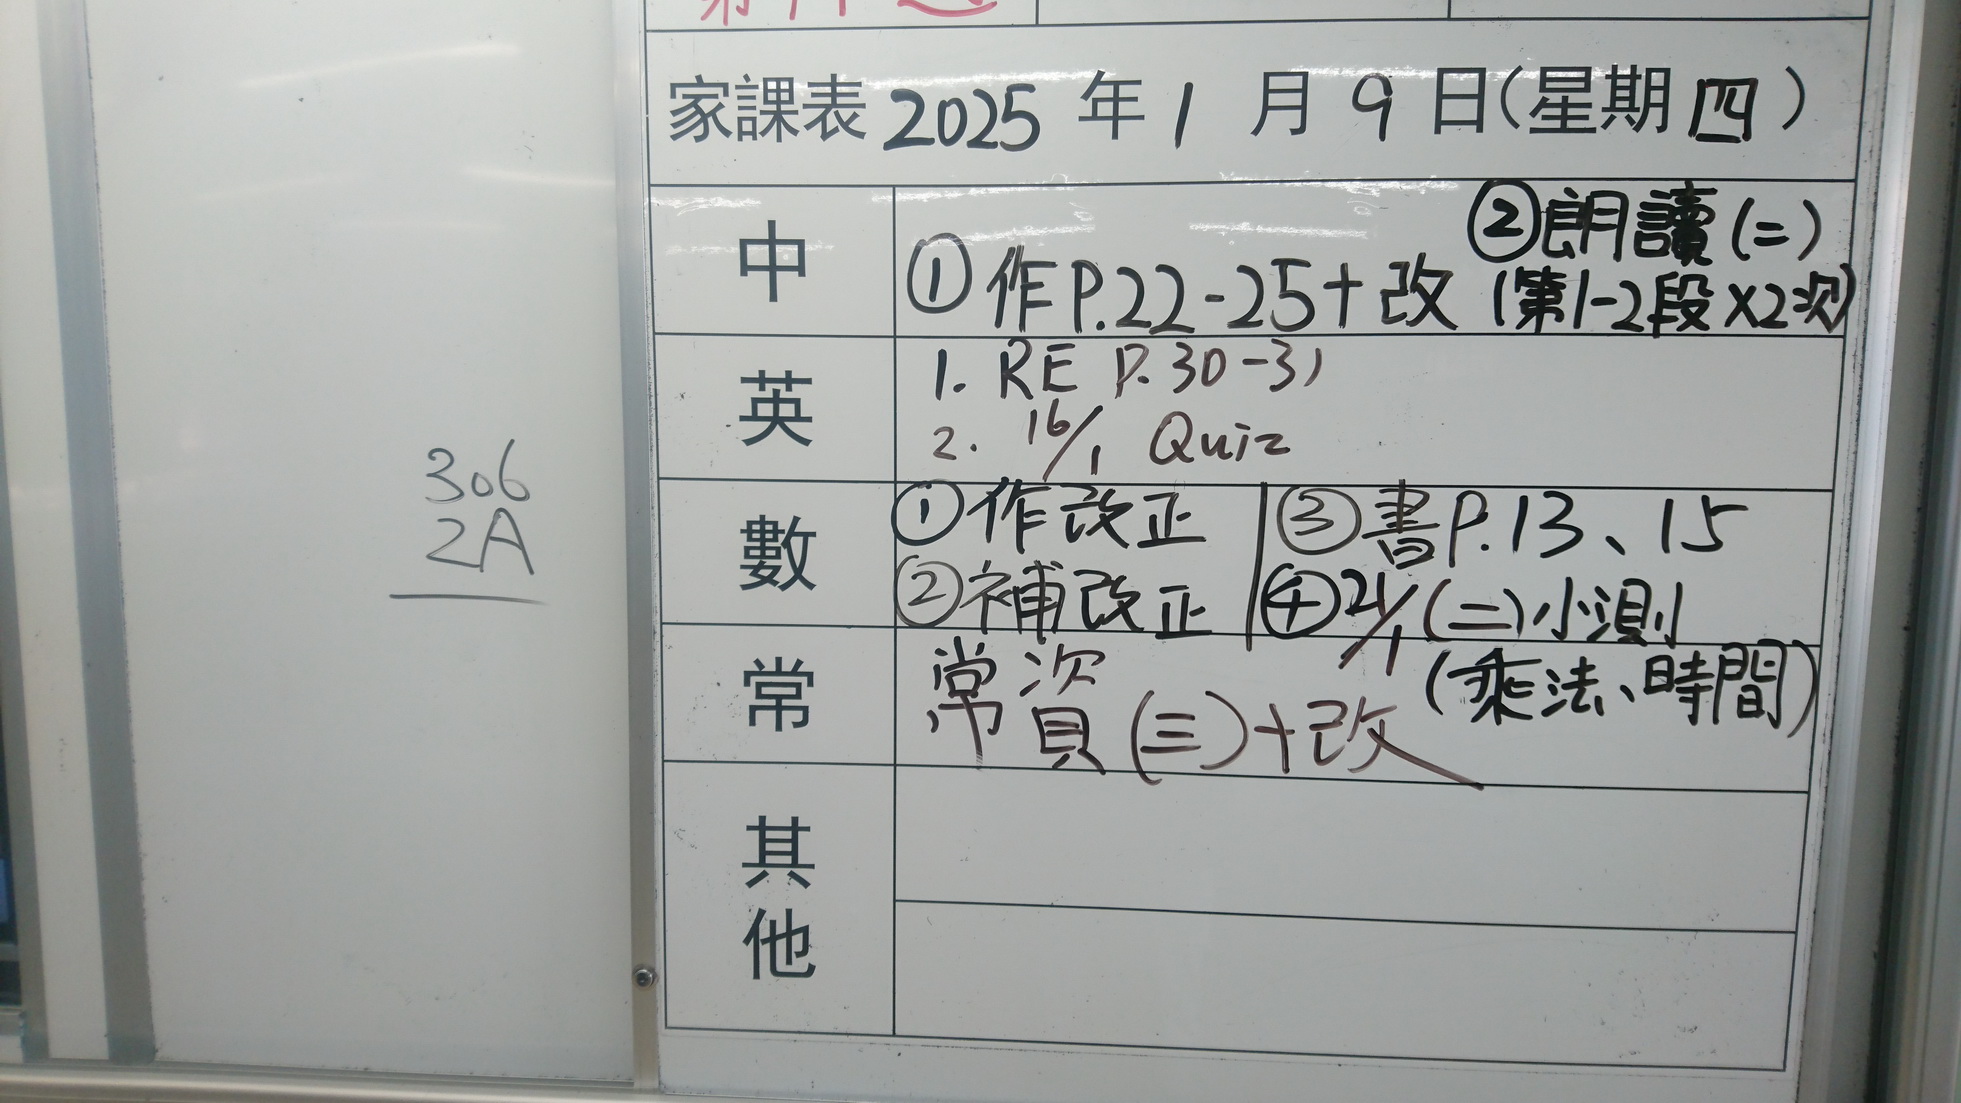 306
2A
家課表 2025 年 1 月 9 日(星期 四)
中
②朗讀(二)
①作P.22-25+改 (第1-2段×2次)
英
1. RE P.30-31
2. 16/1 Quiz
數
①作改正 ③書P.13、15
②補改正 ④21/1(二)小測
(乘法、時間)
常
常資(三)+改
其他